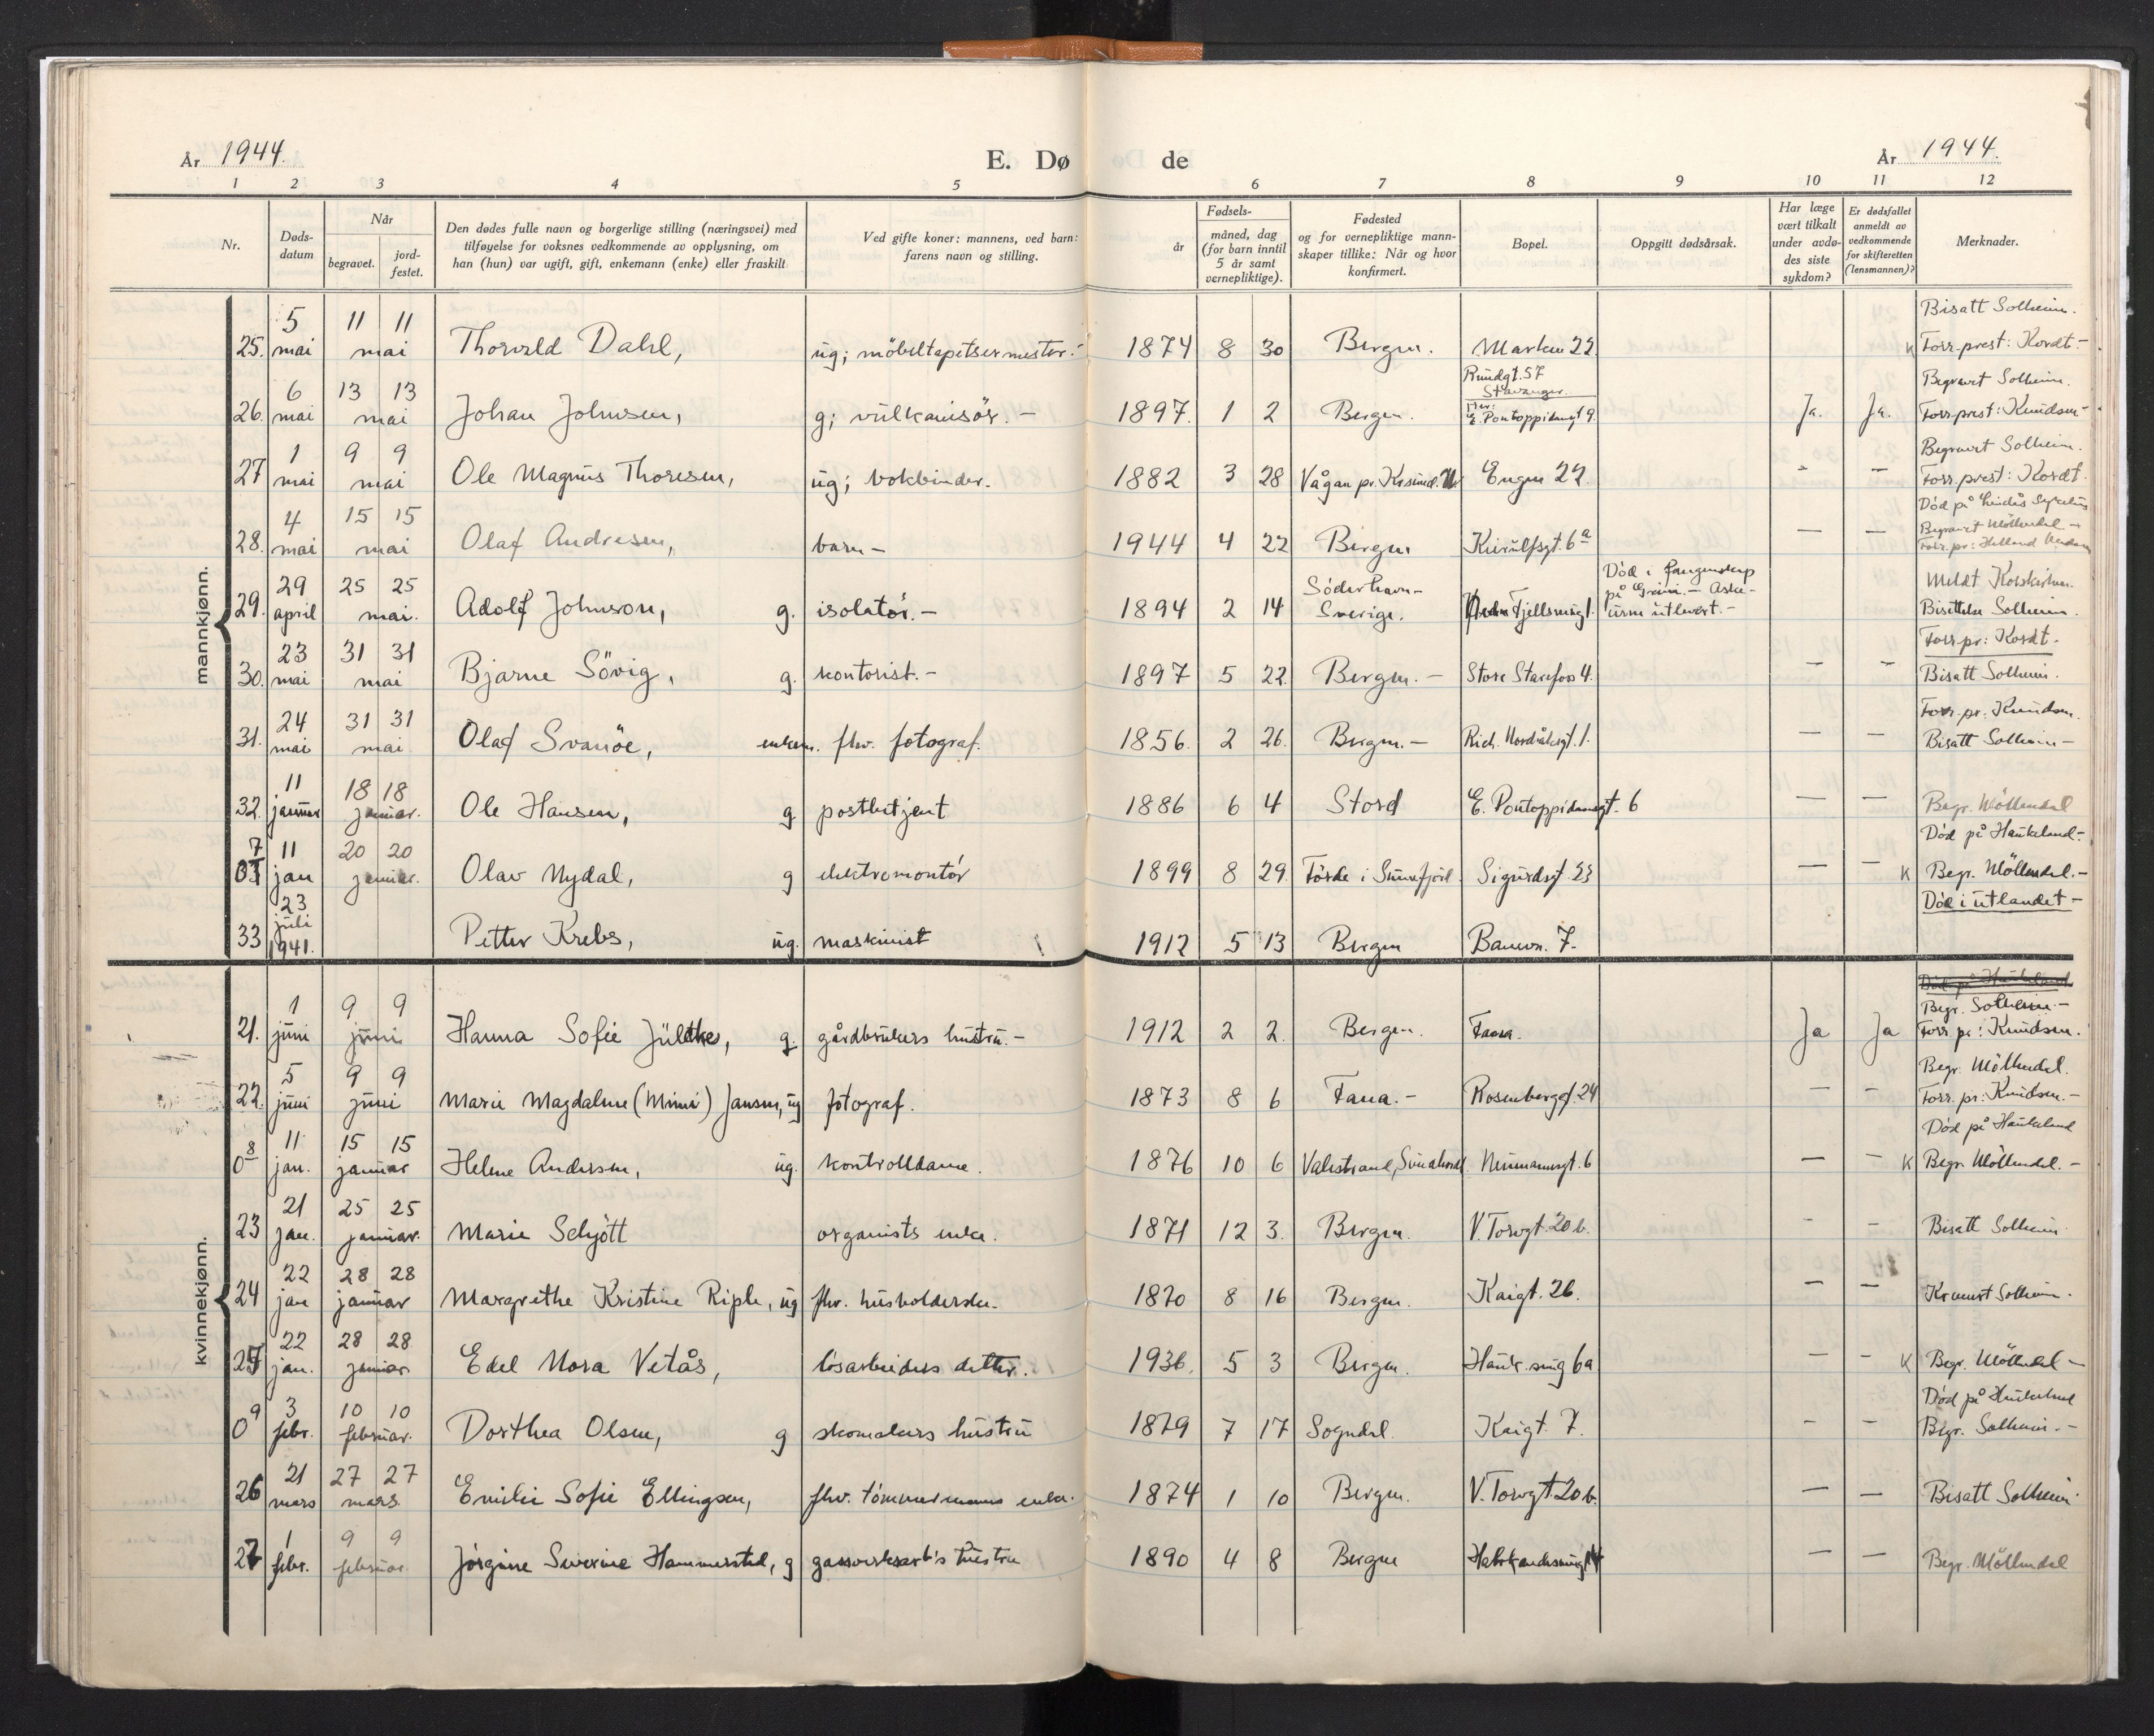 År 1944.
E. Dø de
År 1944.
1 2 3 4 5 6 7 8 9 10 11 12
Nr.
Døds-
datum
Når
begravet.
jord-
festet.
Den dødes fulle navn og borgerlige stilling (næringsvei) med
tilføyelse for voksnes vedkommende av opplysning, om
han (hun) var ugift, gift, enkemann (enke) eller fraskilt
Ved gifte koner: mannens, ved barn:
farens navn og stilling.
Fødsels-
år
måned, dag
(for barn inntil
5 år samt
vernepliktige).
Fødested
og for vernepliktige mann-
skaper tillike: Når og hvor
konfirmert.
Bopel.
Oppgitt dødsårsak.
Har læge
vært tilkalt
under avdø-
des siste
sykdom?
Er dødsfallet
anmeldt av
vedkommende
for skifteretten
(lensmannen)?
Merknader.
mannkjønn.
Bisatt Solheim.
25. 5 mai 11 11 mai Thorvald Dahl, ug; möbeltapetsermester. 1874 8 30 Bergen. Marken 22 K Forr. prest: Kordt.-
Rundgt. 57
Stavanger.
Begravet Solheim.
26. 6 mai 13 13 mai Johan Johnsen, g; vulkanisör. - 1897. 1 2 Bergen. E. Pontoppidansgt 9. Ja. Ja. Forr. prest: Knudsen-
Begravet Solheim.
27 1 mai 9 9 mai Ole Magnus Thoresen, ug; bokbinder. 1882 3 28 Vågan pr. Krsund. N Engen 22. - - Forr. prest: Kordt.
Död på
Begravet Möllendal -
28. 4 mai 15 15 mai Olaf Andresen, barn - 1944 4 22 Bergen Kierulfsgt. 6a - - Forr. pr: Helland
Död i fangenskap
på Grini. - Aske-
urne utlevert. -
Meldt Korskirken.
29. 29 april 25 25 mai. Adolf Johnson, g. isolatör. - 1894 2 14 Söderhavn- Sverige. Fjellsmug 1. Bisettelse Solheim.
Forr pr: Kordt.
30. 23 mai 31 31 mai Bjarne Sövig, g. kontorist. - 1897 5 22. Bergen. - Store Starefoss 4. - - Bisatt Solheim.
Forr. pr: Knudsen.
31. 24 mai 31 31 mai Olaf Svanöe, enkem. fhv. fotograf. 1856. 2 26. Bergen. - Rich. Nordråksgt. 1. - - Bisatt Solheim -
32. 11 januar 18 18 januar. Ole Hansen, g postbetjent 1886 6 4 Stord E. Pontoppidansgt. 6 - - Begr. Möllendal
Död på Haukeland-
07 11 jan 20 20 januar. Olav Nydal, g elektromontör 1899 8 29. Förde i Sunnfjord Sigurdsgt. 23 - - K Begr. Möllendal. -
Död i utlandet -
33 23 juli 1941. Petter Krebs, ug. maskinist 1912 5 13 Bergen Banevn. 7.
kvinnekjønn.
Död på Haukeland
Begr. Solheim -
21. 1 juni 9 9 juni Hanna Sofie Jültkes, g. gårdbrukers hustru. - 1912 2 2. Bergen. Fana. Ja Ja Forr pr: Knudsen.
Begr. Möllendal.
22. 5 juni 9 9 juni Marie Magdalene (Mimi) Jansen, ug fotograf. 1873 8 6 Fana. - Rosenbergsgt. 24 - - Forr. pr: Knudsen. -
Död på Haukeland
08 11 jan. 15 15 januar Helene Andersen, ug. kontrolldame. 1876 10 6 Valestrand, Sunnhordl. Neumannsgt. 6 - - K Begr. Möllendal. -
23 21 jan. 25 25 januar. Marie Schjött organists enke. 1871 12 3. Bergen. V. Torvgt. 20 b. - - Bisatt Solheim
24 22 jan 28 28 januar Margrethe Kristine Riple, ug fhv. husholderske. 1870 8 16 Bergen. Kaigt. 26. - - Kremert Solheim.
25 22 jan. 28 28 januar Edel Nora Vetås, lösarbeiders datter. 1936. 5 3 Bergen. Hauk. smug 6a - - K Begr. Möllendal -
Död på Haukeland
09 3 febr. 10 10 februar. Dorthea Olsen, g skomakers hustru 1879 7 17 Sogndal. Kaigt. 7. - - Begr. Solheim. -
26 21 mars 27 27 mars Emilie Sofie Ellingsen, fhv. tömmermanns enke. 1874 1 10 Bergen. V. Torvgt 20 b. - - Bisatt Solheim
27 1 febr. 9 9 februar. Jörgine Severine Hammerstad, g gassverksarb's hustru 1890 4 8 Bergen - - Begr. Möllendal